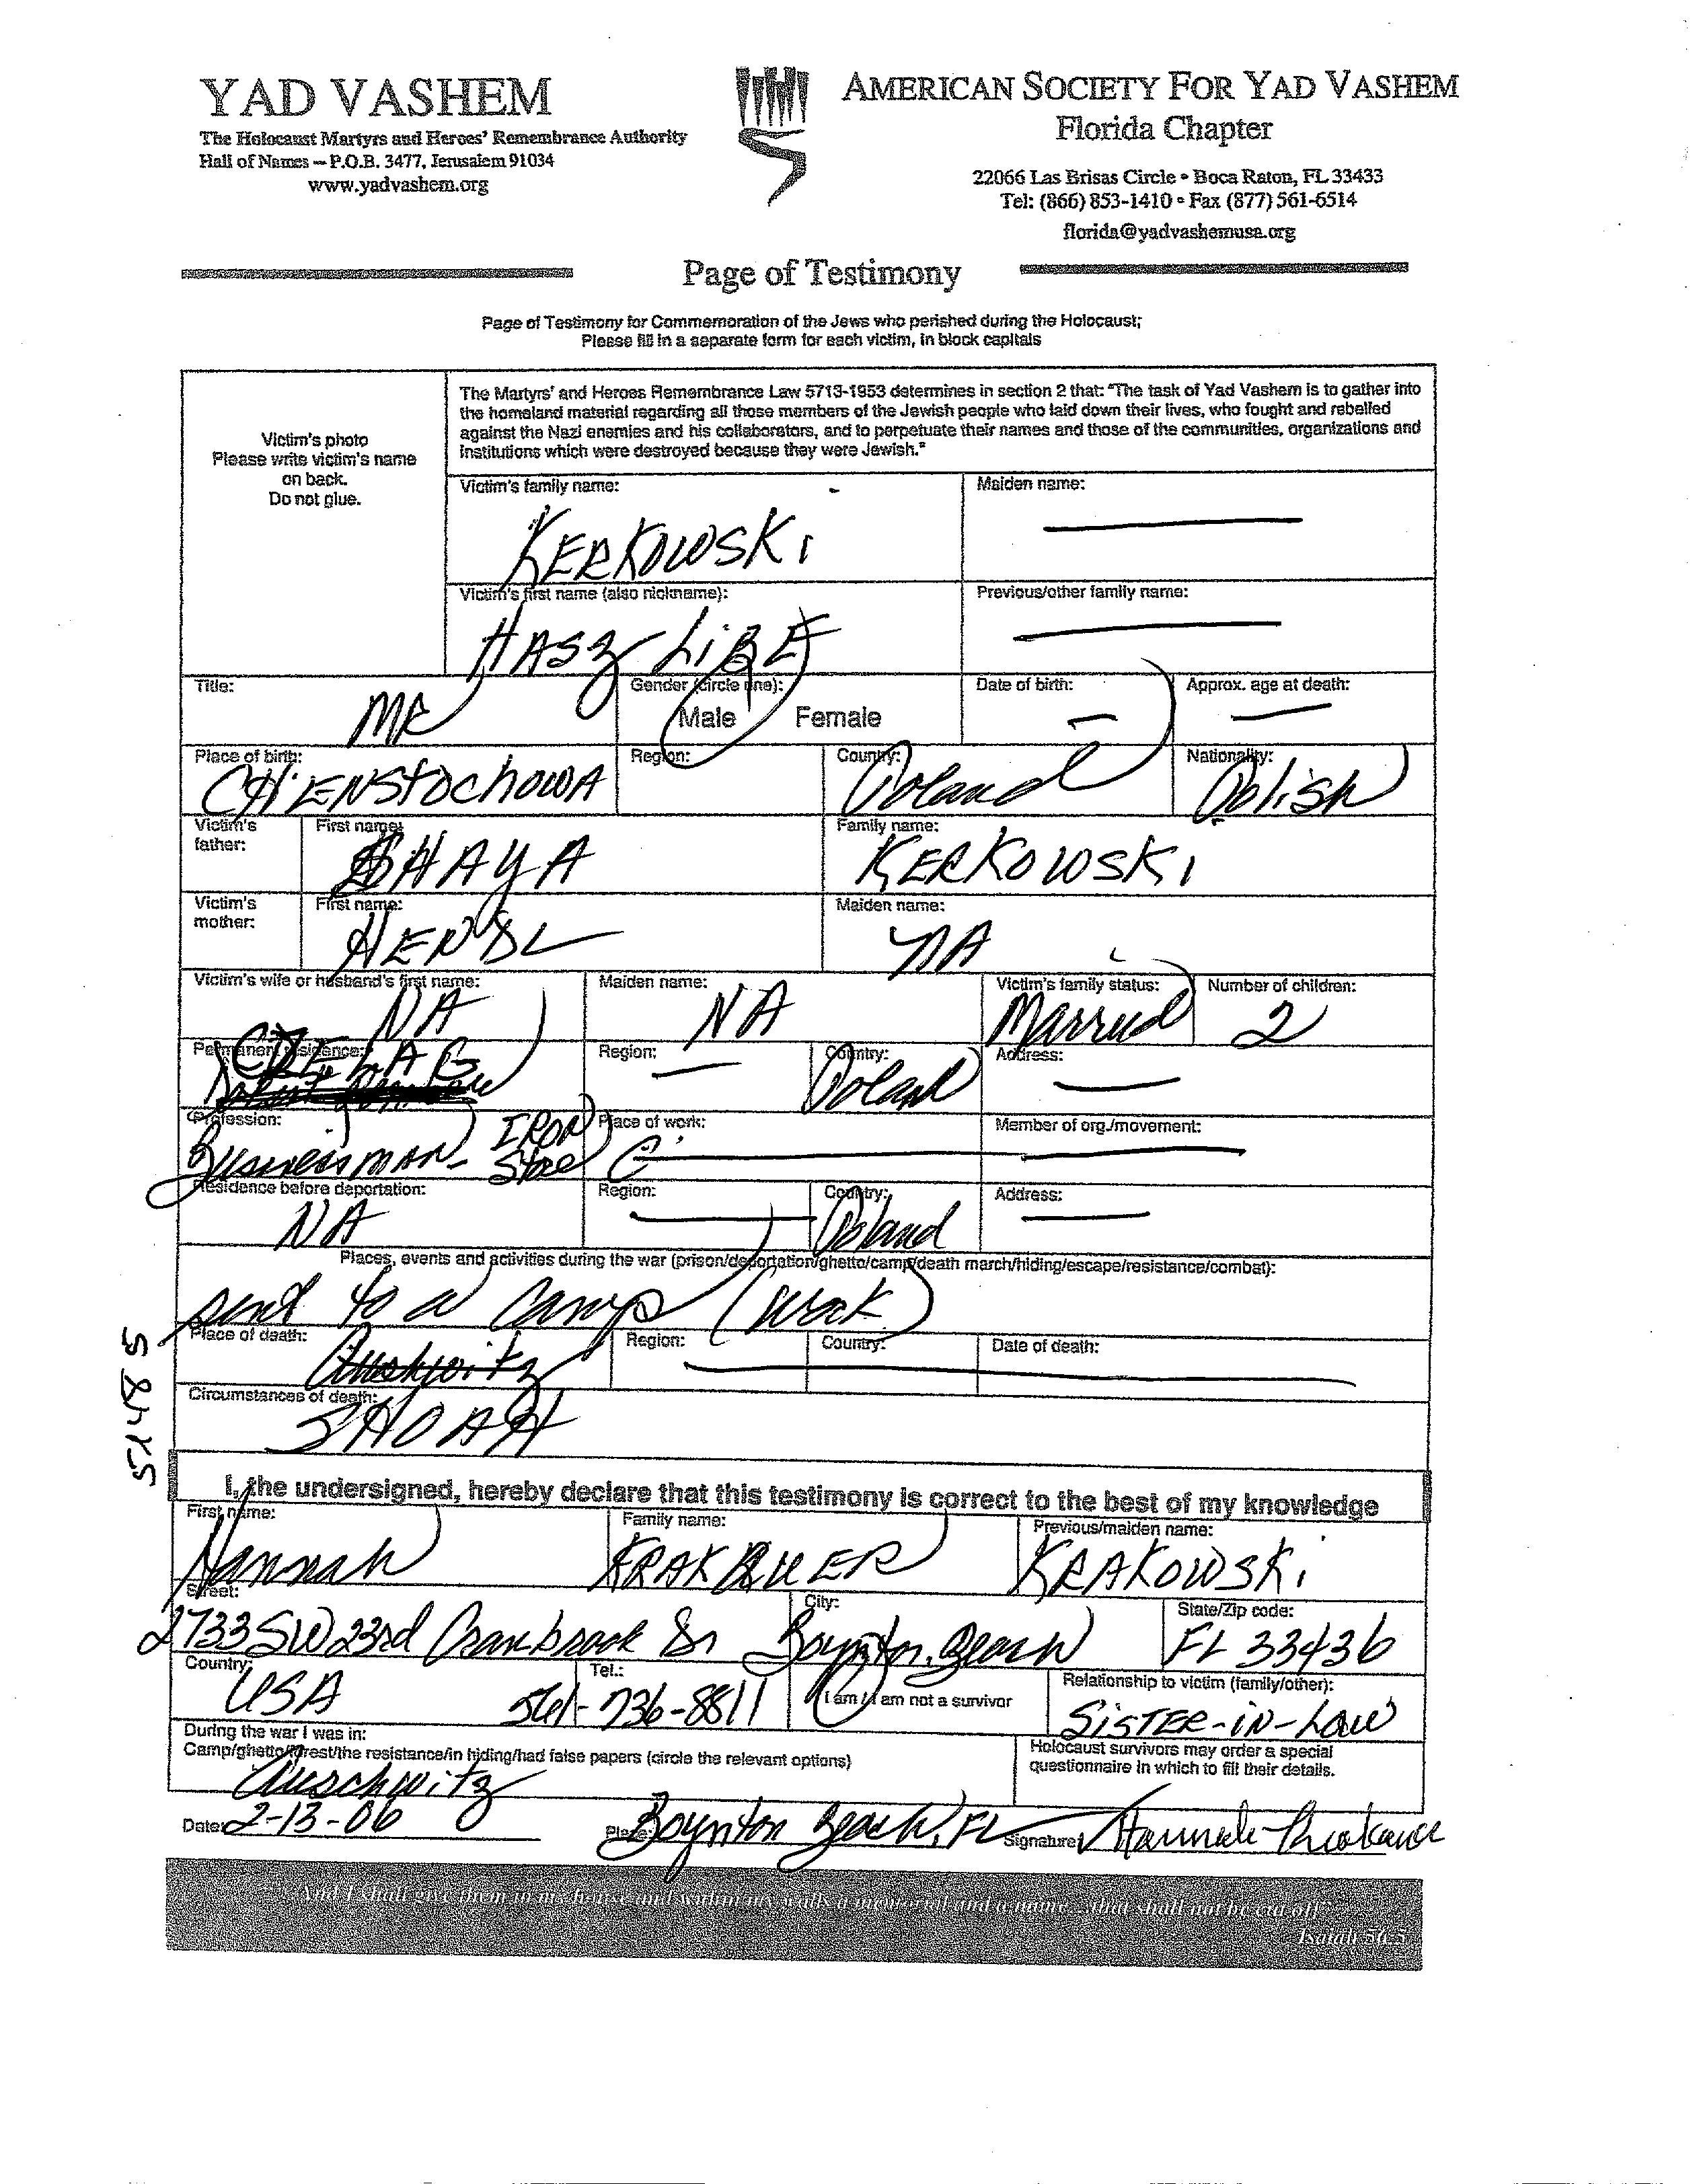 YAD VASHEM
The Holocaust Martyrs and Heroes' Remembrance Authority
Hall of Names – P.O.B. 3477, Jerusalem 91034
www.yadvashem.org
AMERICAN SOCIETY FOR YAD VASHEM
Florida Chapter
22066 Las Brisas Circle • Boca Raton, FL 33433
Tel: (866) 853-1410 • Fax (877) 561-6514
florida@yadvashemusa.org
Page of Testimony
Page of Testimony for Commemoration of the Jews who perished during the Holocaust;
Please fill in a separate form for each victim, in block capitals
Victim's photo
Please write victim's name
on back.
Do not glue.
The Martyrs' and Heroes Remembrance Law 5713-1953 determines in section 2 that: "The task of Yad Vashem is to gather into
the homeland material regarding all those members of the Jewish people who laid down their lives, who fought and rebelled
against the Nazi enemies and his collaborators, and to perpetuate their names and those of the communities, organizations and
institutions which were destroyed because they were Jewish."
Victim's family name: Maiden name:
KERKOWSKI
Victim's first name (also nickname): Previous/other family name:
HASZ LIBE
Title: Gender (circle one): Date of birth: Approx. age at death:
MR Male Female
Place of birth: Region: Country: Nationality:
Poland Polish
Victim's father: First name: Family name:
SHAYA KERKOWSKI
Victim's mother: First name: Maiden name:
NA
Victim's wife or husband's first name: Maiden name: Victim's family status: Number of children:
NA NA Married 2
Permanent residence: Region: Country: Address:
Poland
Profession: Place of work: Member of org./movement:
Businessman - IRON Store
Residence before deportation: Region: Country: Address:
NA Poland
Places, events and activities during the war (prison/deportation/ghetto/camp/death march/hiding/escape/resistance/combat):
sent to a camp (work)
Place of death: Region: Country: Date of death:
Auskwitz
Circumstances of death:
SHOAH
51485
I, the undersigned, hereby declare that this testimony is correct to the best of my knowledge
First name: Family name: Previous/maiden name:
Hannah KRAKAUER KRAKOWSKI
Street: City: State/Zip code:
2733 SW 23rd Cranbrook Dr Boynton Beach FL 33436
Country: Tel.: I am / I am not a survivor Relationship to victim (family/other):
USA 561-736-8811 SISTER-IN-LAW
During the war I was in:
Camp/ghetto/forest/the resistance/in hiding/had false papers (circle the relevant options)
Auschwitz
Holocaust survivors may order a special
questionnaire in which to fill their details.
Date: 2-13-06 Place: Boynton Beach, FL Signature: Hannah Krakauer
And I shall give them in my house and within my walls a memorial and a name ...that shall not be cut off"
Isaiah 56:5